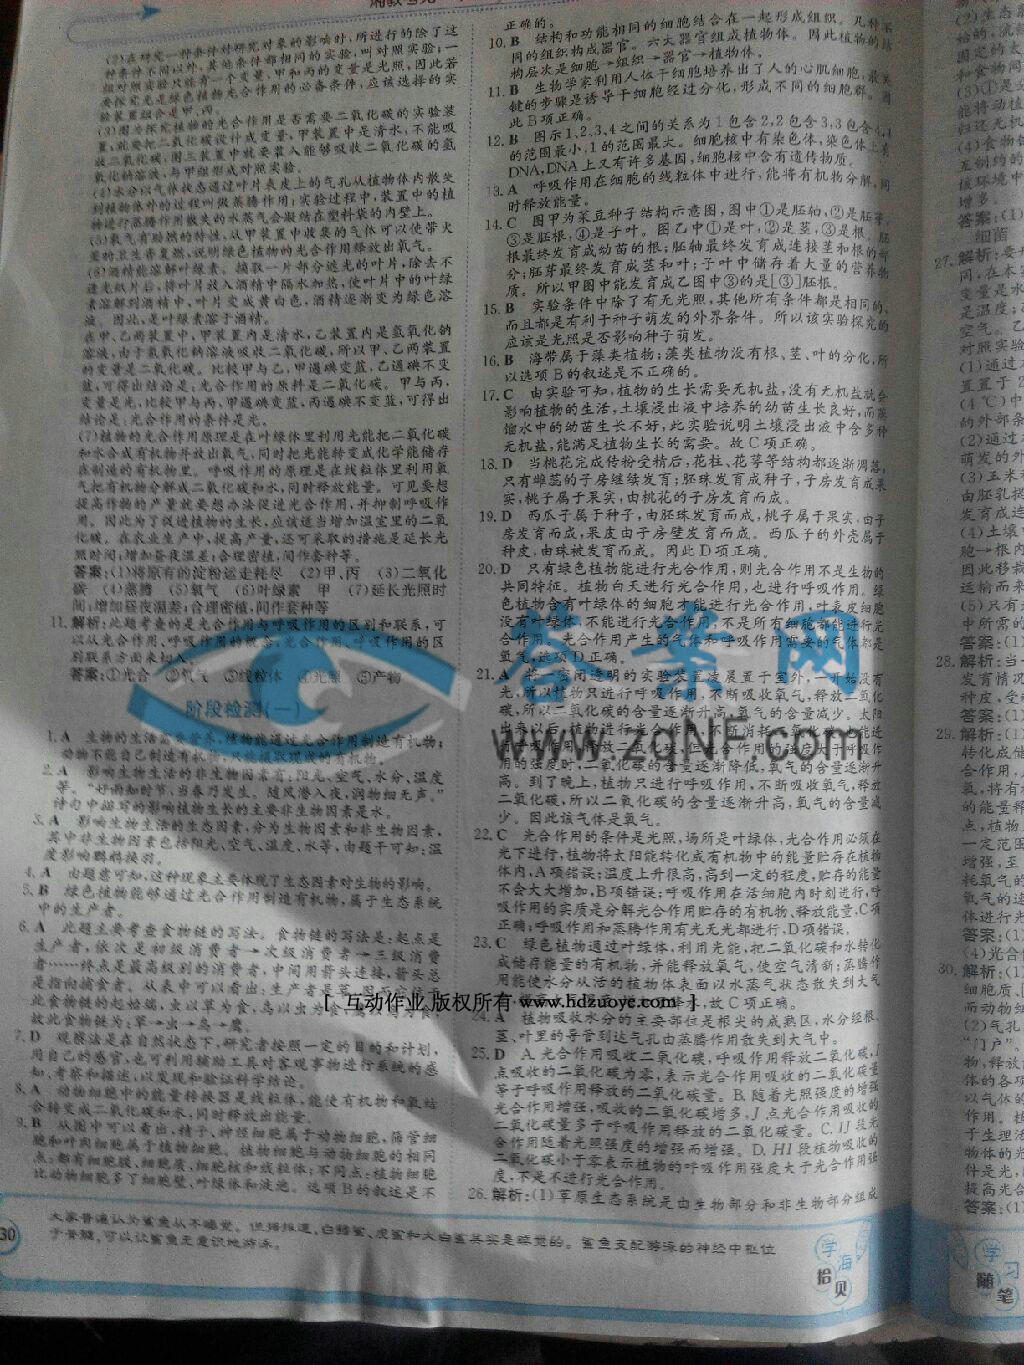 (2)在研究一种条件对研究对象的影响时,所进行的除了这
种条件不同以外,其他条件都相同的实验,叫对照实验;一
组对照实验只能有一个变量,甲和丙的变量是光照,因此若
要探究光是绿色植物光合作用的必备条件,应该选择的实
验装置组合是甲、丙。
(3)因为探究植物的光合作用是否需要二氧化碳的实验装
置,就要把二氧化碳设计成变量,甲装置中是清水,不能吸
收二氧化碳,图三装置中就要装入能够吸收二氧化碳的氢
氧化钠溶液,与甲组形成对照实验。
(4)水分以气体状态通过叶片表皮上的气孔从植物体内散失
到植物体外的过程叫做蒸腾作用;实验过程中,装置中的植
物进行蒸腾作用散失的水蒸气会凝结在塑料袋的内壁上。
(5)氧气有助燃的特性,从甲装置中收集的气体可以使带火
星的卫生香复燃,说明绿色植物的光合作用释放出氧气。
(6)酒精能溶解叶绿素。摘取一片部分遮光的叶片,除去不
透光纸片后,将叶片放入酒精中隔水加热,使叶片中的叶绿
素溶解到酒精中,叶片变成黄白色,酒精逐渐变为绿色溶
液。因此,是叶绿素溶于酒精。
在甲、乙两装置中,甲装置内是清水,乙装置内是氢氧化钠
溶液,由于氢氧化钠溶液吸收二氧化碳,所以甲、乙两装置
的变量是二氧化碳。比较甲与乙,甲遇碘变蓝,乙遇碘不变
蓝,可得出结论是:光合作用的原料是二氧化碳。甲与丙,
变量是光,比较甲与丙,甲遇碘变蓝,丙遇碘不变蓝,可得出
结论是:光合作用的条件是光。
(7)植物的光合作用原理是在叶绿体里利用光能把二氧化碳
和水合成有机物并放出氧气,同时把光能转变成化学能储存
在制造的有机物里。呼吸作用的原理是在线粒体里利用氧
气把有机物分解成二氧化碳和水,同时释放能量。可见要想
提高作物的产量就要想办法促进光合作用,并抑制呼吸作
用。因此为了促进植物的生长,应该适当增加温室里的二氧
化碳。在农业生产中,提高产量,还可采取的措施是延长光
照时间;增加昼夜温差;合理密植,间作套种等。
答案:(1)将原有的淀粉运走耗尽 (2)甲、丙 (3)二氧化
碳 (4)蒸腾 (5)氧气 (6)叶绿素 甲 (7)延长光照时
间;增加昼夜温差;合理密植,间作套种等
11.解析:此题考查的是光合作用与呼吸作用的区别和联系,可
以从光合作用、呼吸作用的概念,光合作用、呼吸作用的区
别联系方面来切入。
答案:①光合 ②氧气 ③线粒体 ④光照 ⑤产物
阶段检测(一)
1.A 生物的生活需要营养,植物能通过光合作用制造有机物;
动物不能自己制造有机物,只能摄取现成的有机物。
2.A 影响生物生活的非生物因素有:阳光、空气、水分、温度
等。“好雨知时节,当春乃发生。随风潜入夜,润物细无声。”
诗句中描写的影响植物生长的主要非生物因素是水。
3.A 影响生物生活的生态因素,分为生物因素和非生物因素,
其中非生物因素包括阳光、空气、温度、水等,由题干可知:温
度影响鹦鹉换羽。
4.A 由题意可知,这种现象主要体现了生态因素对生物的影响。
5.B 绿色植物能够通过光合作用制造有机物,属于生态系统
中的生产者。
6.A 此题主要考查食物链的写法。食物链的写法是:起点是
生产者,依次是初级消费者→次级消费者→三级消费
者……终点是最高级别的消费者,中间用箭头连接,箭头总
是指向捕食者。从表中可以看出:生产者是草,
此食物链的起始端,虫以草为食,鸟以虫为食,
故此食物链为:草→虫→鸟→鹰。
7.D 观察法是在自然状态下,研究者按照一定的目的和计划,
用自己的感官,也可利用辅助工具对客观事物进行系统的感
知、考察和描述,以发现和验证科学结论。
8.A 动物细胞中的能量转换器是线粒体,能使有机物和氧结
合转变成二氧化碳和水,同时释放出能量。
9.B 从图中可以看出,精子、神经细胞属于动物细胞,筛管细
胞和叶肉细胞属于植物细胞。植物细胞与动物细胞的相同
点:都有细胞膜、细胞质、细胞核和线粒体;不同点:植物细胞
比动物细胞多了细胞壁、叶绿体和液泡。选项B的叙述是不
正确的。
10.B 结构和功能相同的细胞结合在一起形成组织。几种不
同的组织构成器官。六大器官组成植物体。因此植物的结
构层次是细胞→组织→器官→植物体。
11.B 生物学家利用人体干细胞培养出了人的心肌细胞,最关
键的步骤是诱导干细胞经过分化,形成不同的细胞群。因
此B项正确。
12.B 图示1、2、3、4之间的关系为1包含2,2包含3,3包含4,4
的范围最小,1的范围最大。细胞核中有染色体,染色体上有
DNA,DNA上又有许多基因,细胞核中含有遗传物质。
13.A 呼吸作用在细胞的线粒体中进行,能将有机物分解,同
时释放能量。
14.C 图甲为菜豆种子结构示意图,图中①是胚轴,②是胚芽,
③是胚根,④是子叶。图乙中①是叶,②是茎,③是根。胚
根最终发育成幼苗的根;胚轴最终发育成连接茎和根的部
分;胚芽最终发育成茎和叶;子叶中储存着大量的营养物
质。所以甲图中能发育成乙图中③的是[③]胚根。
15.B 实验条件中除了有无光照,其他所有条件都是相同的,
而且都是有利于种子萌发的外界条件。所以该实验探究的
应该是光照是否影响种子萌发。
16.B 海带属于藻类植物;藻类植物没有根、茎、叶的分化,所
以选项B的叙述是不正确的。
17.C 由实验可知,植物的生长需要无机盐,没有无机盐就会
影响植物的生活,土壤浸出液中培养的幼苗生长良好,而蒸
馏水中的幼苗生长不好,此实验说明土壤浸出液中含多种
无机盐,能满足植物生长的需要。故C项正确。
18.D 当桃花完成传粉受精后,花柱、花萼等结构都逐渐凋落,
只有雌蕊的子房继续发育;胚珠发育成种子,子房发育成果
实,桃子属于果实,由桃花的子房发育而成。
19.D 西瓜子属于种子,由胚珠发育而成,桃子属于果实,由子
房发育而成,果皮由子房壁发育而成。西瓜子的外壳属于
种皮,由珠被发育而成。因此D项正确。
20.D 只有绿色植物能进行光合作用,则光合作用不是生物的
共同特征。植物白天进行光合作用,也进行呼吸作用。绿
色植物含有叶绿体的细胞才能进行光合作用,叶表皮细胞
没有叶绿体,不能进行光合作用,不是所有细胞都能进行光
合作用。光合作用产生的气体和呼吸作用需要的气体都是
氧气,选项D正确。
21.A 将一密闭透明的实验装置凌晨置于室外,一开始没有
光,所以植物只进行呼吸作用,不断吸收氧气,释放二氧化
碳,所以二氧化碳的含量逐渐升高,氧气的含量减少。太阳
用的强度时,二氧化碳的含量逐渐降低,氧气的含量逐渐升
高。到了晚上,植物只进行呼吸作用,不断吸收氧气,释放
二氧化碳,所以二氧化碳的含量逐渐升高,氧气的含量减
少。因此该气体是氧气。
22.C 光合作用的条件是光照,场所是叶绿体,光合作用必须在
光下进行,植物将太阳能转化成有机物中的能量贮存在植物
体内,A项错误;温度上升很高,高到一定的程度,贮存的能量
不会大大增加,B项错误;呼吸作用在活细胞内时刻进行,呼
吸作用的实质是分解光合作用贮存的有机物、释放能量,C项
正确;呼吸作用和蒸腾作用有光无光都进行,D项错误。
23.C 绿色植物通过叶绿体,利用光能,把二氧化碳和水转化
成储存能量的有机物,并能释放氧气,使空气清新;蒸腾作
用能使水分从活的植物体表面以水蒸气状态散失到大气
故C项正确。
24.A 植物吸收水分的主要部位是根尖的成熟区,水分经根、
茎、叶里的导管到达气孔由蒸腾作用散失到大气中。
25.D A.光合作用吸收二氧化碳,呼吸作用释放二氧化碳,J
点吸收的二氧化碳为零,表示光合作用吸收的二氧化碳量
等于呼吸作用释放的二氧化碳量。B.随着光照强度的增强
光合作用增强,吸收的二氧化碳增多,J点光合作用吸收的
二氧化碳量多于呼吸作用释放的二氧化碳量。C.IJ段光
合作用随着光照强度的增强而增强。D.HI段植物吸收的
二氧化碳小于零表示植物的呼吸作用强度大于光合作用强
度,不是不进行光合作用。
26.解析:(1)草原生态系统是由生物部分和非生物部分组成
答案网
www.zqNF.com
[ 互动作业 版权所有 www.hdzuoye.com ]
大家普遍认为鲨鱼从不睡觉。但据报道,白鳍鲨、虎鲨和大白鲨其实是睡觉的。鲨鱼支配游泳的神经中枢位
于脊髓,可以让鲨鱼无意识地游泳。
30
学海拾贝
学习随笔
27.解析:
28.解析:当
29.解析:(1)
30.解析:(1)